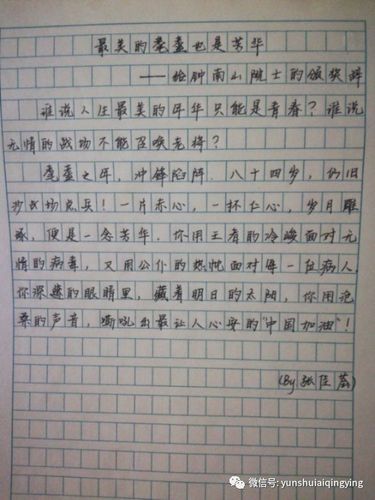 最美的耄耋也是芳华
——给钟南山院士的颁奖辞
谁说人生最美的年华只能是青春？谁说
无情的战场不能召唤老将？
耄耋之年，冲锋陷阵。八十四岁，仍旧
沙场点兵！一片赤心，一杯仁心，岁月雕
琢，便是一念芳华。你用王者的冷峻面对无
情的病毒，又用公仆的热忱面对每一位病人。
你深邃的眼睛里，藏着明日的太阳，你用沧
桑的声音，嘶吼出最让人心安的“中国加油”！
(By 张佳
微信号: yunshuaiqingying